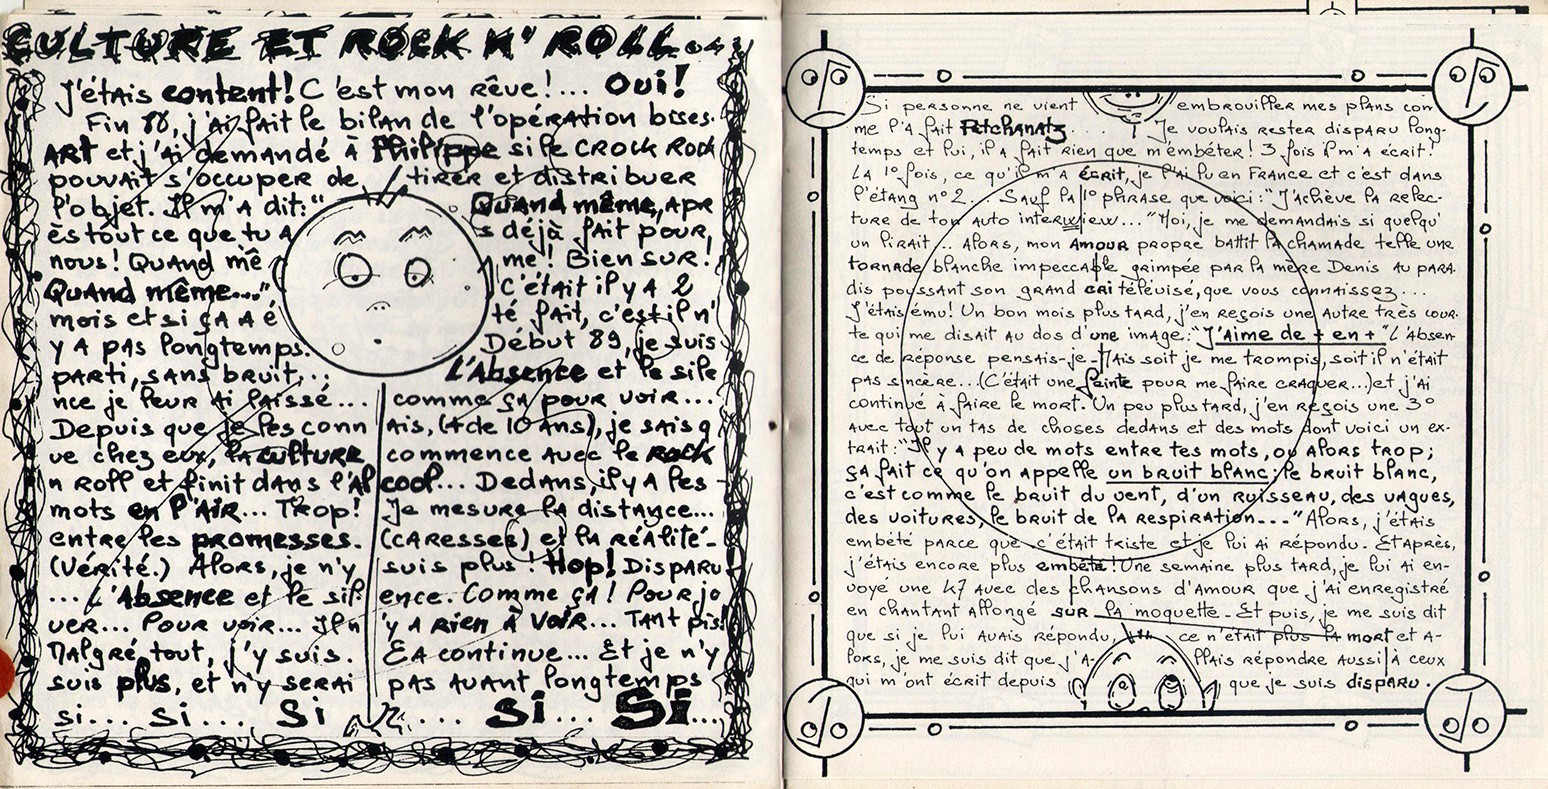 CULTURE ET ROCK N' ROLL
J'étais content! C'est mon rêve!.... Oui!
Fin 88, j'ai fait le bilan de l'opération bises.
ART et j'ai demandé à Philippe si le CROCK ROCK
pouvait s'occuper de tirer et distribuer
l'objet. Il m'a dit: "Quand même, apr
ès tout ce que tu as déjà fait pour,
nous! Quand mê me! Bien sur!
Quand même..." C'était il y a 2
mois et si ça a é té fait, c'est il n'
y a pas longtemps. Début 89, je suis
parti, sans bruit... L'Absence et le sile
nce je leur ai laissé.... comme ça pour voir...
Depuis que je les conn ais, (+ de 10 ans), je sais q
ue chez eux, la culture commence avec le rock
n roll et finit dans l'Al cool... Dedans, il y a les
mots en l'air... Trop! Je mesure la distance...
entre les promesses. (caresses) et la réalité.
(Vérité.) Alors, je n'y suis plus. Hop! Disparu.
... L'Absence et le sil ence. Comme ça! Pour jo
uer... Pour voir... Il n 'y a rien à voir... Tant pis!
Malgré tout, j'y suis. Ça continue... Et je n'y
suis plus, et n'y serai pas avant longtemps
si... si.... si .... si... Si...
Si personne ne vient embrouiller mes plans com
me l'a fait Petchanatz.... Je voulais rester disparu long-
temps et lui, il a fait rien que m'embéter! 3 fois il m'a écrit!
La 1° fois, ce qu'il m'a écrit, je l'ai lu en France et c'est dans
l'étang n°2... Sauf la 1° phrase que voici: "J'achève la relec-
ture de ton auto interwiew..." Moi, je me demandais si quelqu'
un lirait... Alors, mon amour propre battit la chamade telle une
tornade blanche impeccable grimpée par la mère Denis au para-
dis poussant son grand cri télévisé, que vous connaissez...
J'étais ému! Un bon mois plus tard, j'en reçois une autre très cour-
te qui me disait au dos d'une image: "J'aime de + en +" L'absen-
ce de réponse pensais-je. Mais soit je me trompis, soit il n'était
pas sincère...(C'était une feinte pour me faire craquer...) et j'ai
continué à faire le mort. Un peu plus tard, j'en reçois une 3°
avec tout un tas de choses dedans et des mots dont voici un ex-
trait: "Il y a peu de mots entre tes mots, ou alors trop;
ça fait ce qu'on appelle un bruit blanc; le bruit blanc,
c'est comme le bruit du vent, d'un ruisseau, des vagues,
des voitures, le bruit de la respiration..." Alors, j'étais
embété parce que c'était triste et je lui ai répondu. Et après,
j'étais encore plus embété! Une semaine plus tard, je lui ai en-
voyé une K7 avec des chansons d'amour que j'ai enregistré
en chantant allongé sur la moquette. Et puis, je me suis dit
que si je lui avais répondu, ce n'était plus la mort et a-
lors, je me suis dit que j'a- llais répondre aussi à ceux
qui m'ont écrit depuis que je suis disparu.